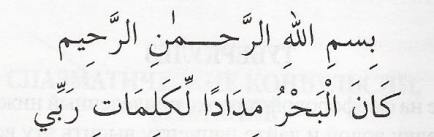 بِسمِ اللهِ الرَّحـــمٰنِ الرَّحِيم
كَانَ الْبَحْرُ مدادًا لِّكَلمات رَبِّي